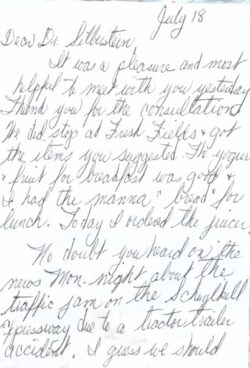 July 18
Dear Dr. Silberstein,
It was a pleasure and most
helpful to meet with you yesterday
Thank you for the consultation
We did stop at Fresh Fields & got
the items you suggested. The yogurt
& fruit for breakfast was good &
I had the manna "bread" for
lunch. Today I ordered the juicer.
No doubt you heard on the
news Mon. night about the
traffic jam on the
Xpressway due to a tractor trailer
accident. I guess we should